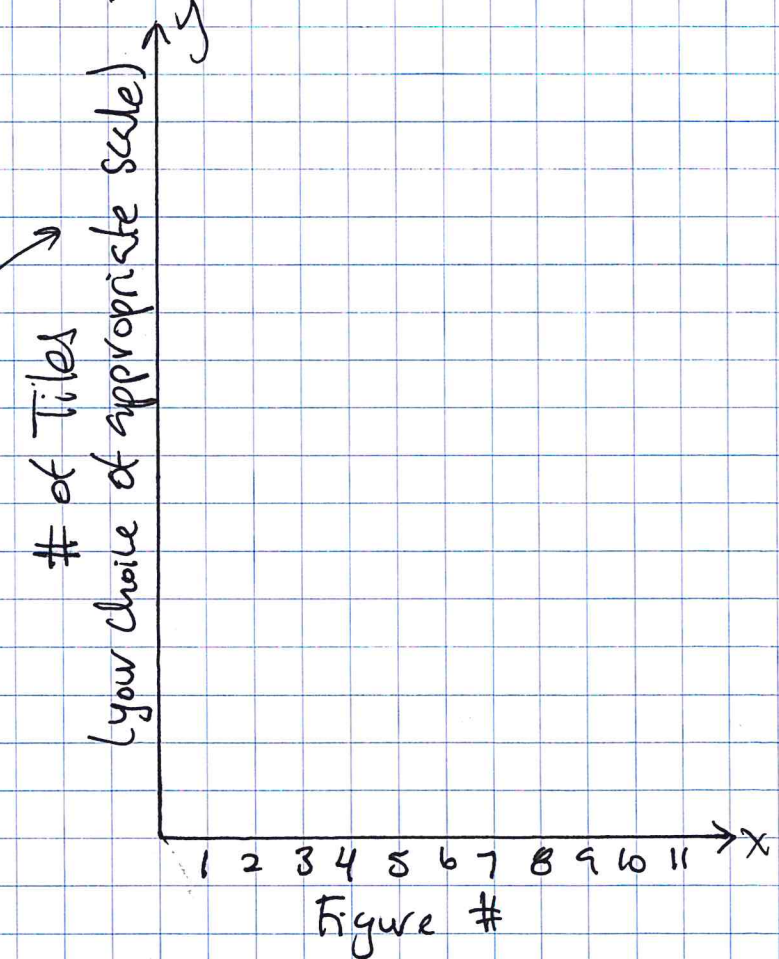 y
# of Tiles
(your choice of appropriate scale)
x
1 2 3 4 5 6 7 8 9 10 11
Figure #